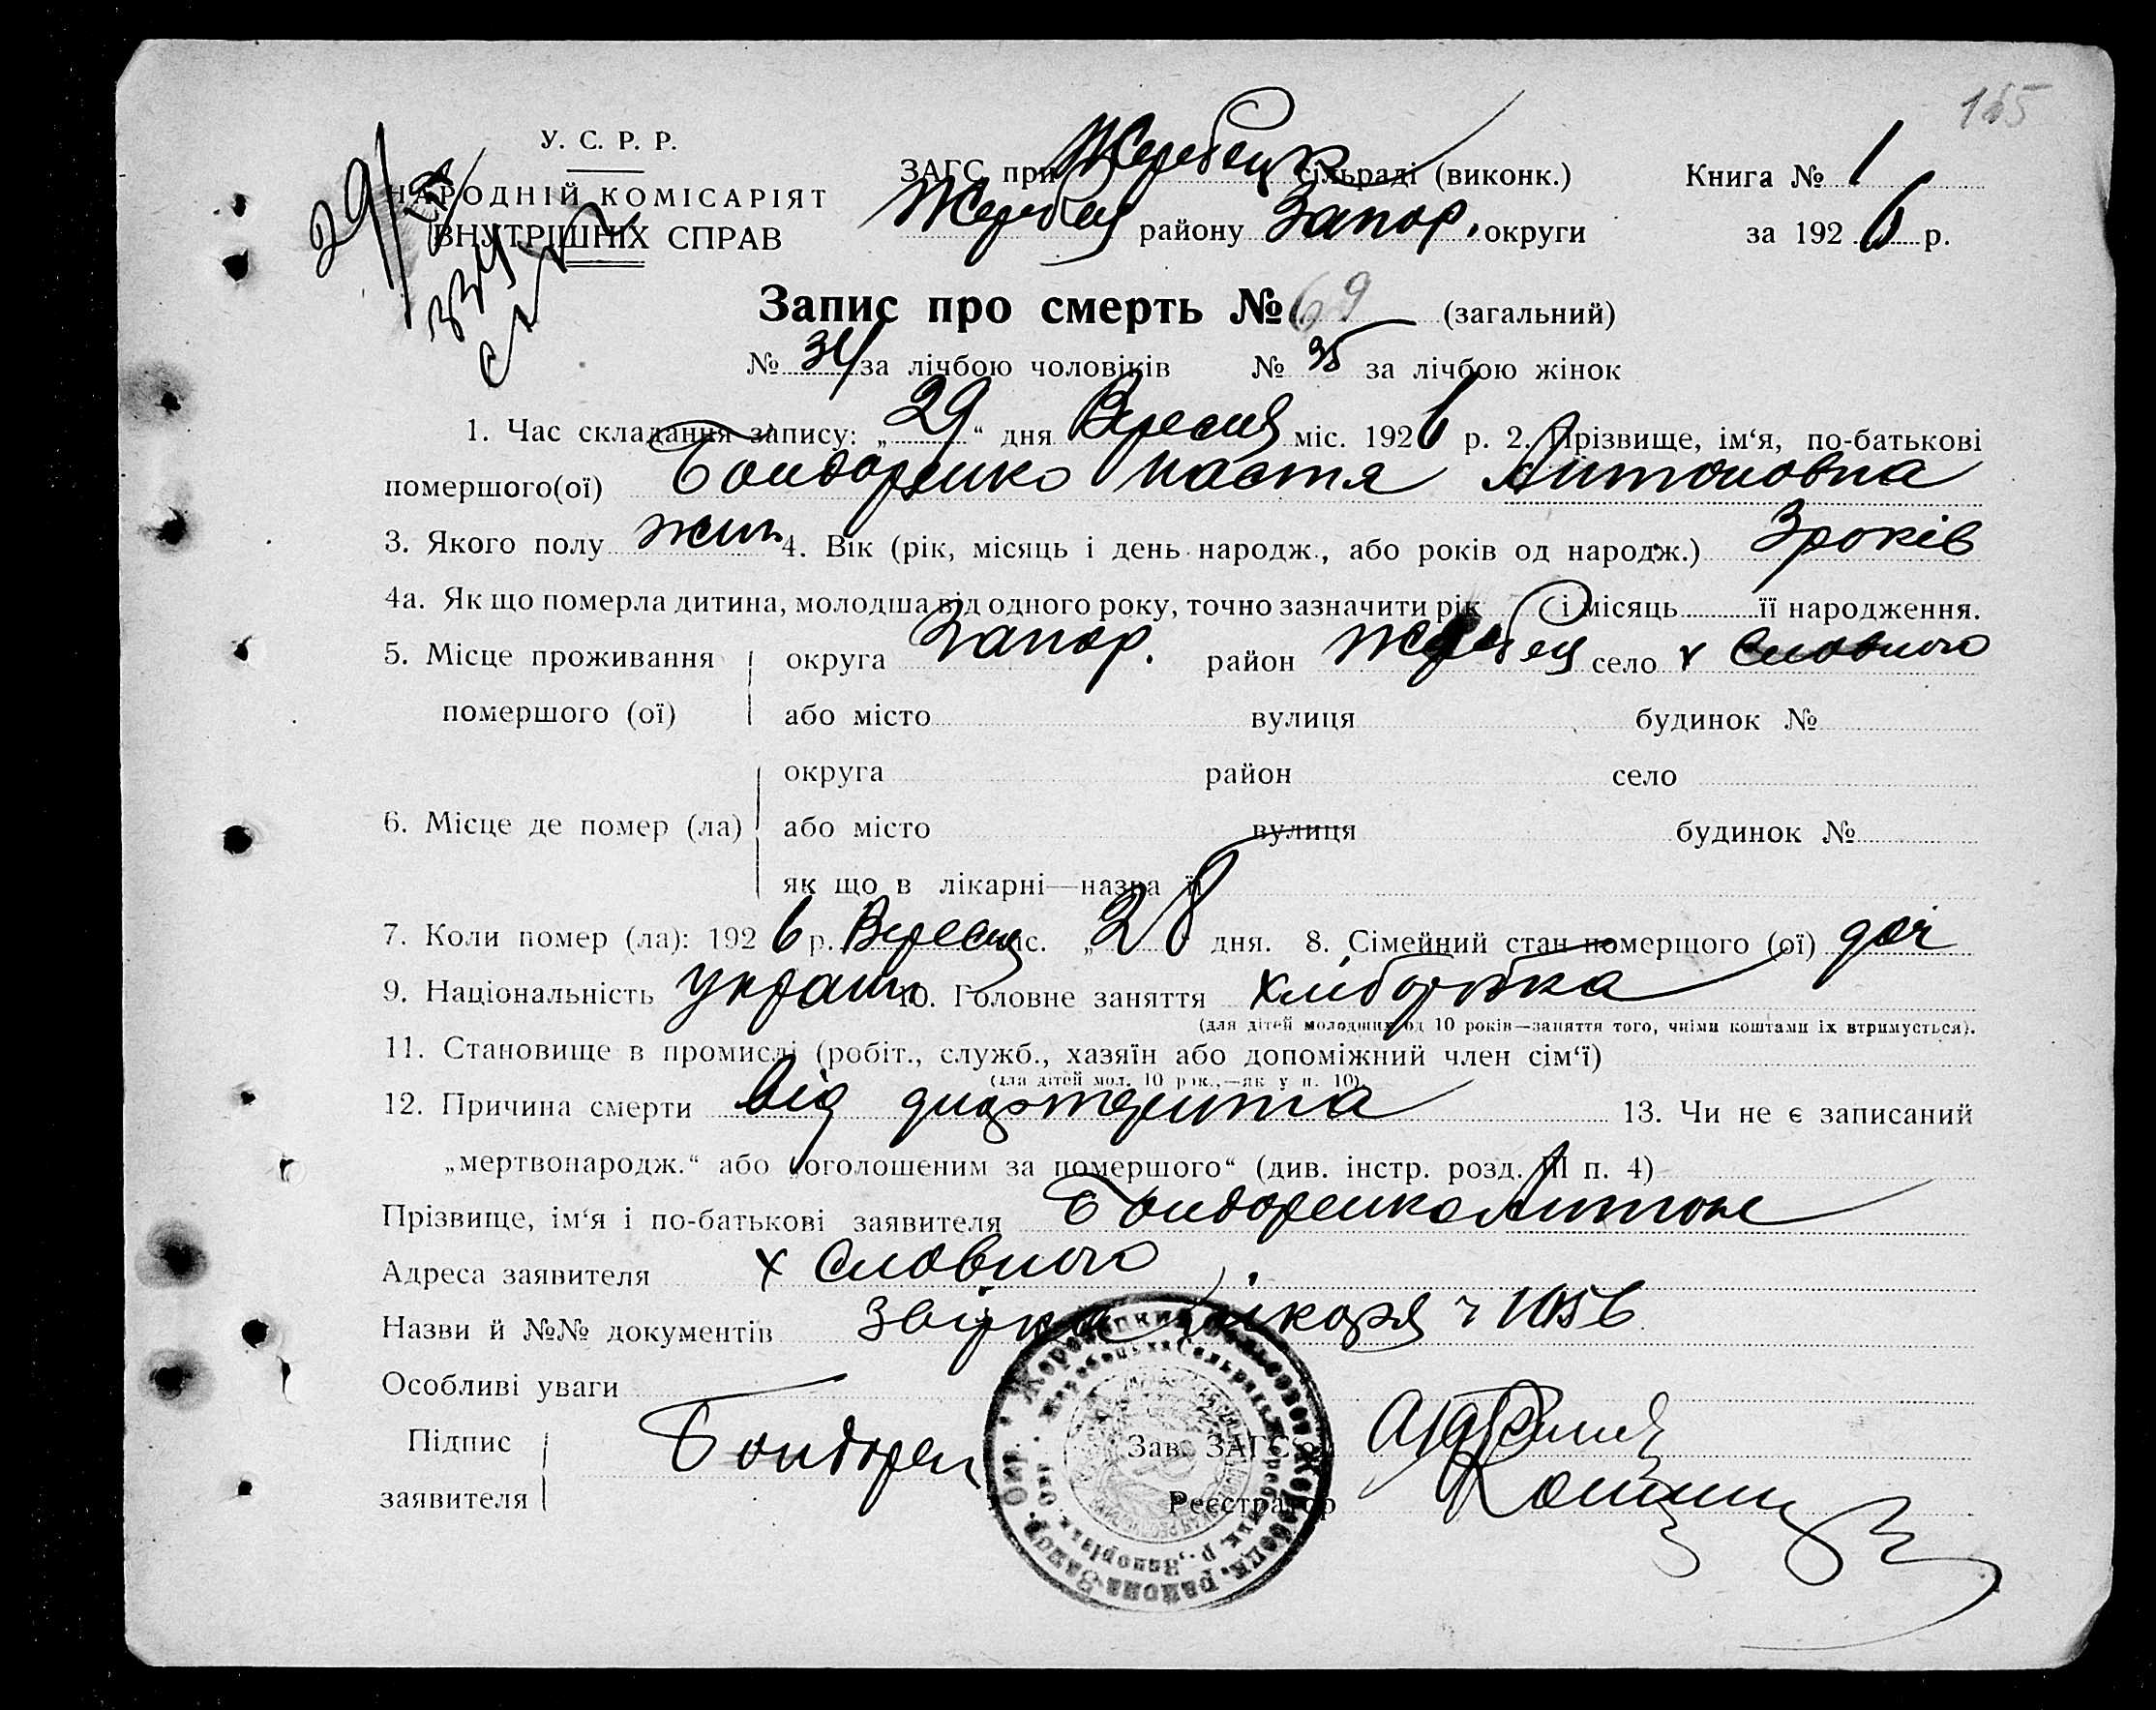 165
У. С. Р. Р.
НАРОДНІЙ КОМІСАРІЯТ
ВНУТРІШНІХ СПРАВ
29/
ЗАГС при Жеребецк сільраді (виконк.)
Жеребец району Запор. округи
Книга № 1
за 1926 р.
Запис про смерть № 69 (загальний)
№ 34 за лічбою чоловіків № 35 за лічбою жінок
1. Час складання запису: „29“ дня Вересня міс. 1926 р. 2. Прізвище, ім‘я, по-батькові
помершого(ої) Бондаренко Настя Антоновна
3. Якого полу жин 4. Вік (рік, місяць і день народж., або років од народж.) 3 років
4а. Як що померла дитина, молодша від одного року, точно зазначити рік і місяць її народження.
5. Місце проживання помершого (ої) округа Запор. район Жеребец село х Словного
або місто вулиця будинок №
округа район село
6. Місце де помер (ла) або місто вулиця будинок №
як що в лікарні—назва її
7. Коли помер (ла): 1926 р. Вересня міс. „28 дня. 8. Сімейний стан помершого (ої) доч
9. Національність україн 10. Головне заняття хліборобка
(для дітей молодших од 10 років—заняття того, чиїми коштами їх втримується).
11. Становище в промислі (робіт., служб., хазяїн або допоміжний член сім‘ї)
(для дітей мол. 10 рок.,—як у п. 10).
12. Причина смерти від 13. Чи не є записаний
„мертвонародж.“ або „оголошеним за помершого“ (див. інстр. розд. III п. 4)
Прізвище, ім‘я і по-батькові заявителя Бондаренко Антон
Адреса заявителя х Словного
Назви й №№ документів Звідка лікаря ч 1056
Особливі уваги
Підпис заявителя Бондарен
Зав. ЗАГС‘ом
Реєстратор